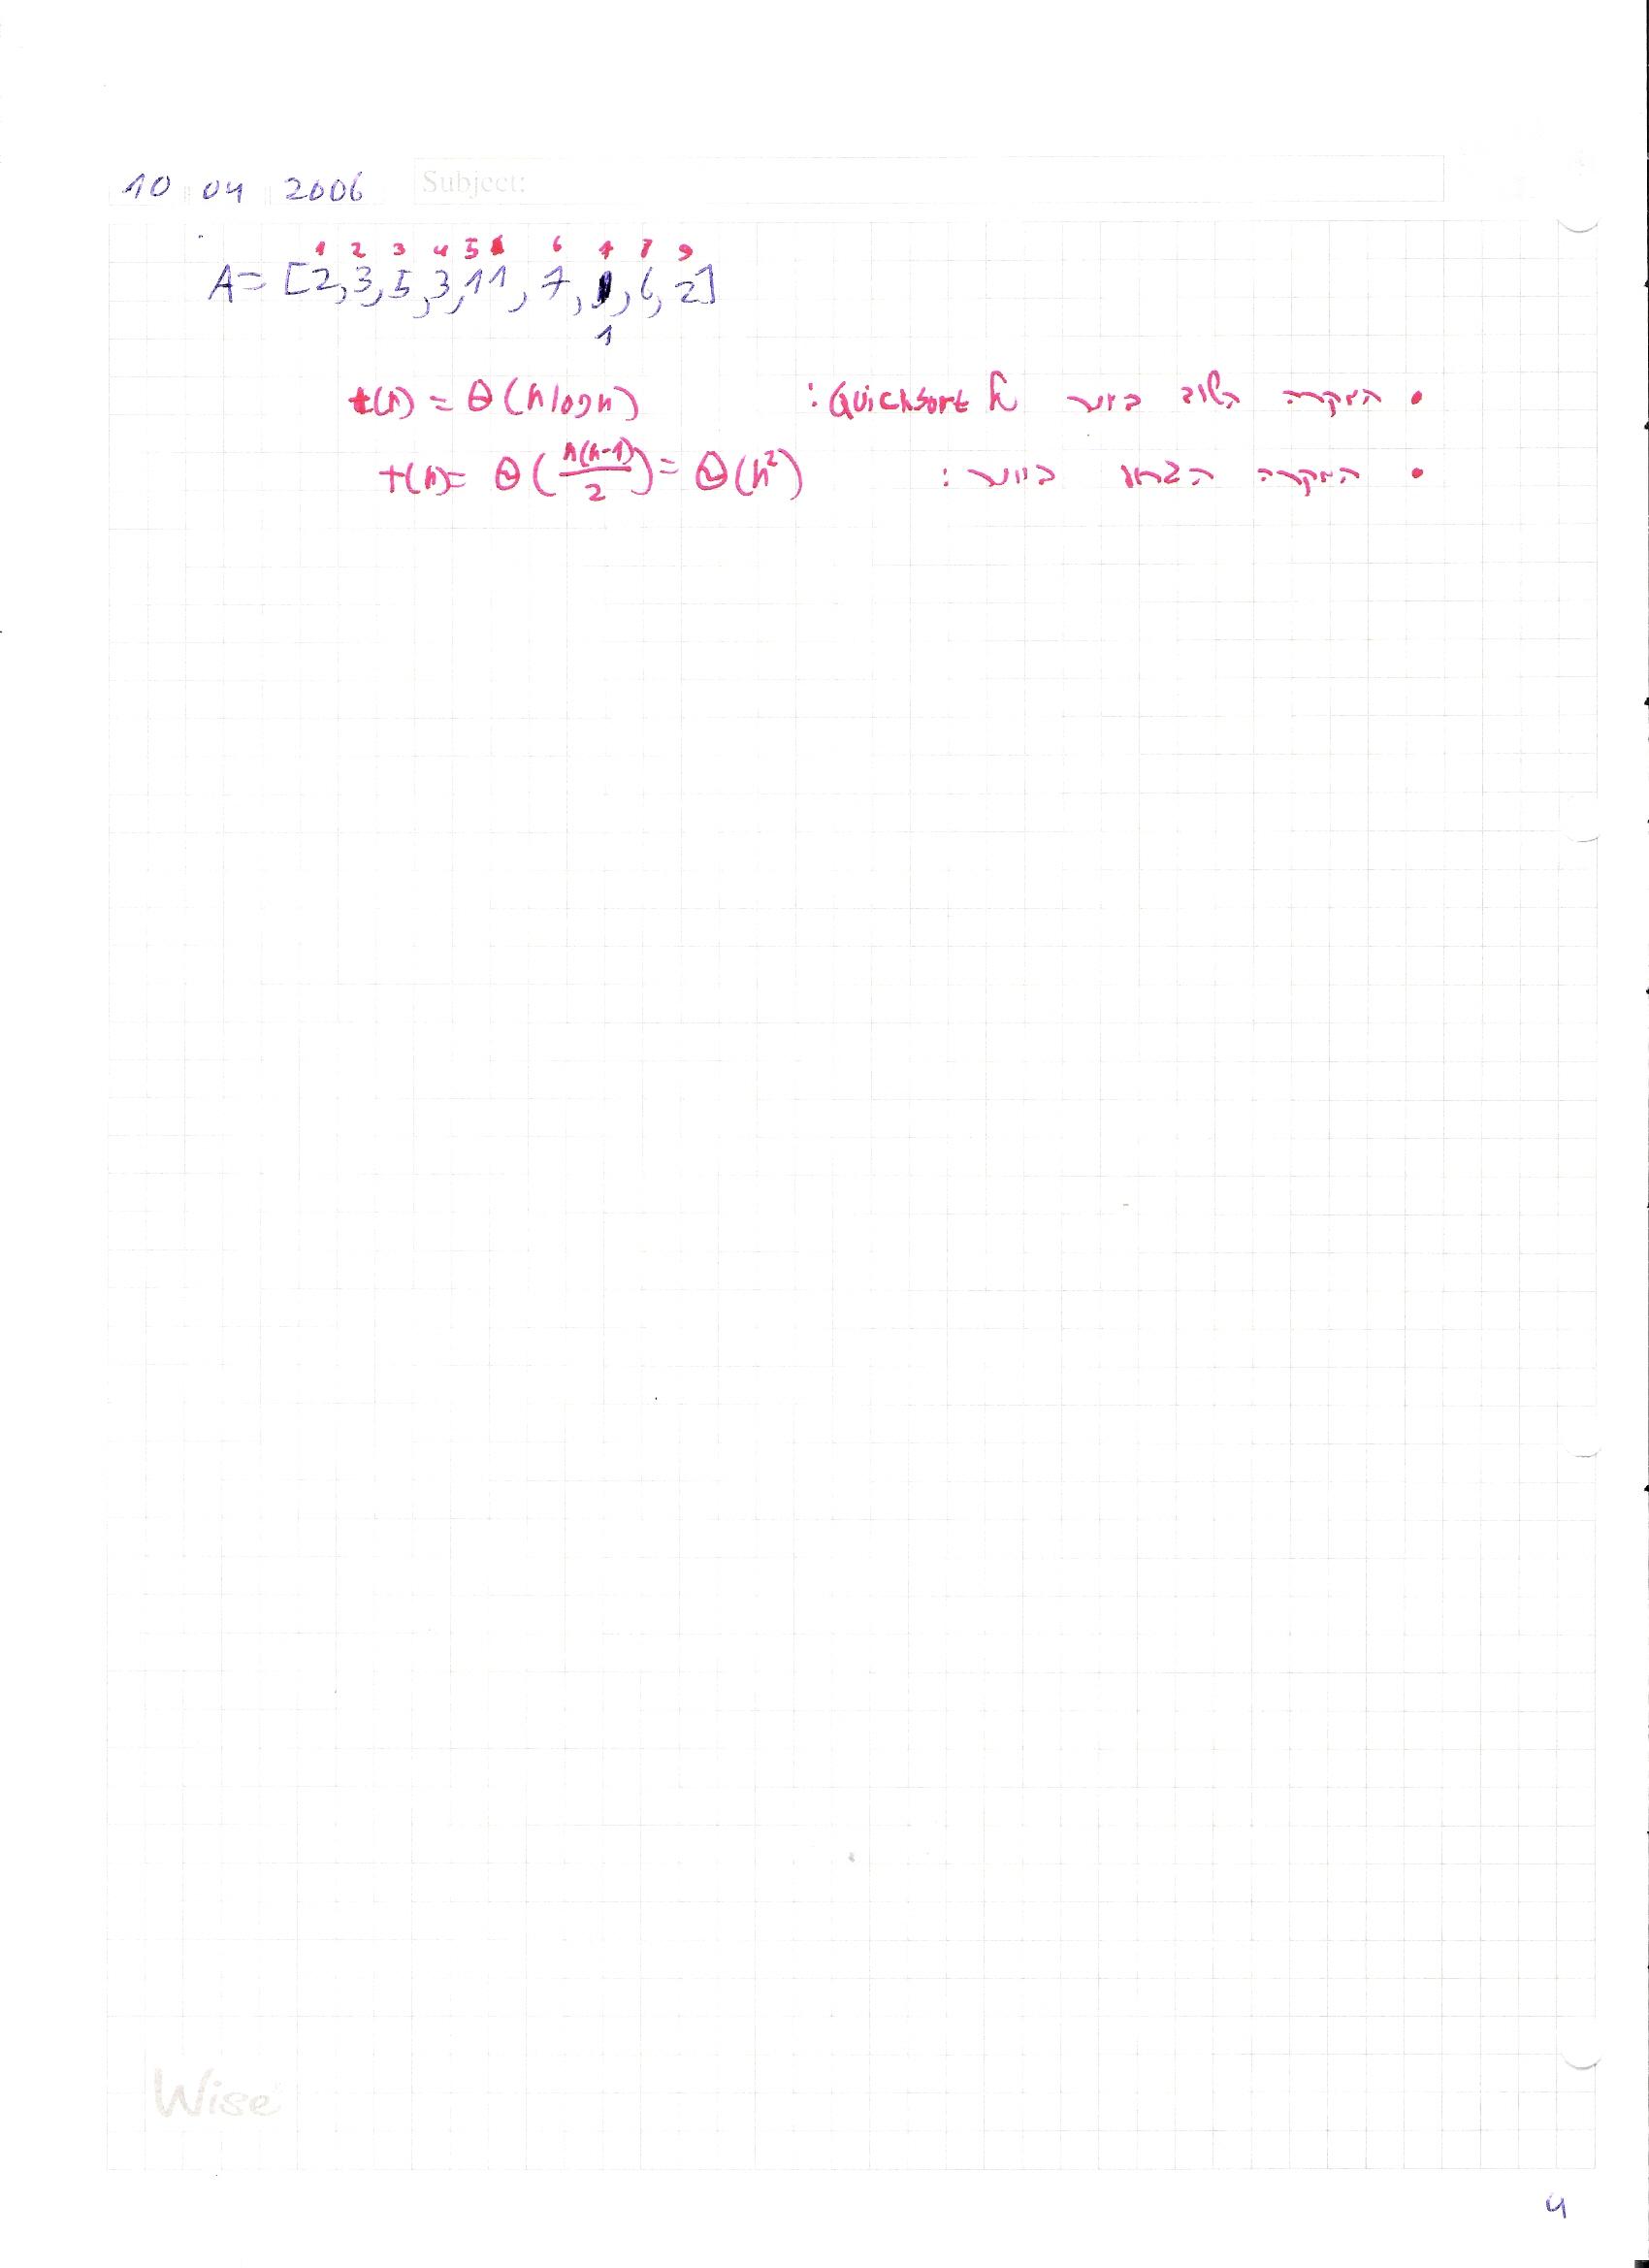 10 04 2006 Subject:
1 2 3 4 5 6 7 8 9
A = [2, 3, 5, 3, 11, 7, 1, 6, 2]
1
• המקרה הטוב ביותר של Quicksort: t(n) = Θ(n log n)
• המקרה הגרוע ביותר: t(n) = Θ(n(n-1)/2) = Θ(n²)
Wise
4